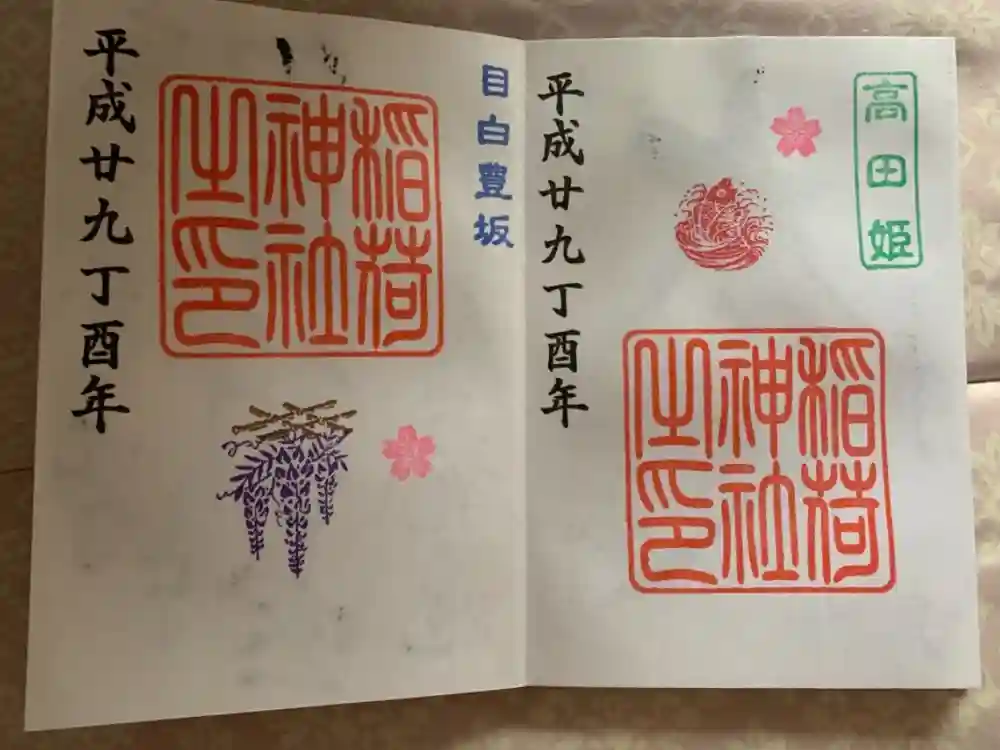 高田姫
稲荷
神社
之印
平成廿九丁酉年
目白豊坂
稲荷
神社
之印
平成廿九丁酉年